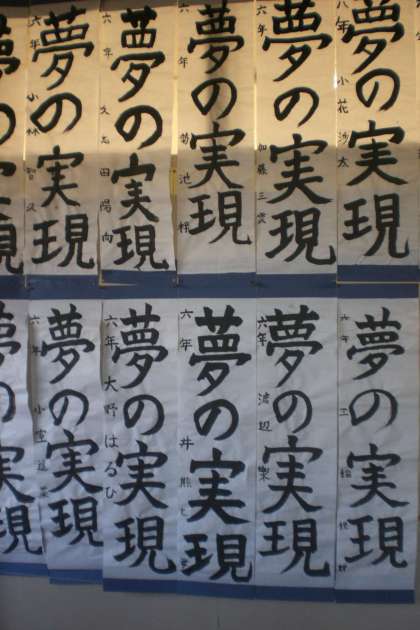 夢の実現
年 小花
夢の実現
六年 加藤 三雲
夢の実現
六年 菊池
夢の実現
六年 田 陽向
夢の実現
六年 小林
の実現
夢の実現
六年
夢の実現
六年 渡辺
夢の実現
六年 井熊
夢の実現
六年 大野 はるひ
夢の実現
六年 小室
夢の実現